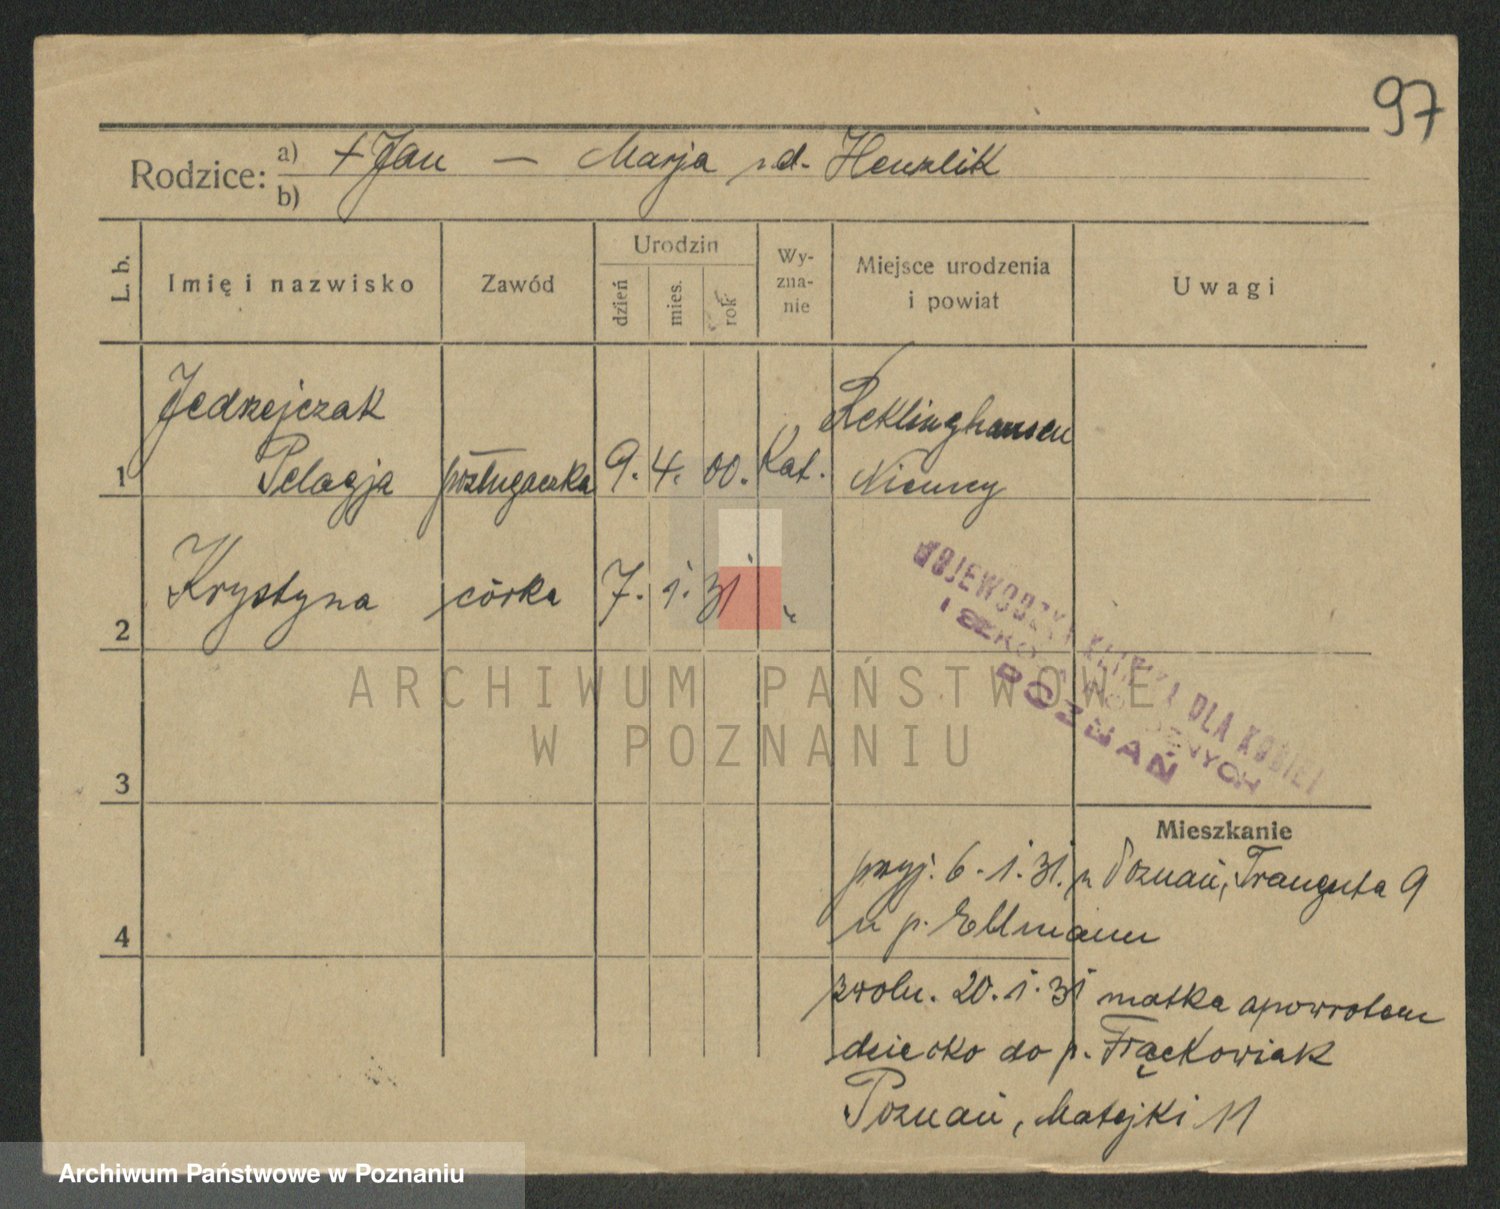 97
Rodzice: a) + Jan — Marja z d. Henzlik
b)
L. b.
Imię i nazwisko
Zawód
Urodzin
dzień
mies.
rok
Wy-
zna-
nie
Miejsce urodzenia
i powiat
Uwagi
Jędrzejczak
Reklinghausen
1 Pelagja posługaczka 9. 4. 00. Kat. Niemcy
2 Krystyna córka 7. 1. 31 "
WOJEWÓDZKA KLINIKA DLA KOBIET
I SZKOŁA POŁOŻNYCH
POZNAŃ
ARCHIWUM PAŃSTWOWE
W POZNANIU
3
Mieszkanie
przyj. 6. 1. 31. z Poznań, Traugutta 9
4
u p. Ellmann
zwoln. 20. 1. 31 matka zpowrotem
dziecko do p. Frąckowiak
Poznań, Matejki 11
Archiwum Państwowe w Poznaniu